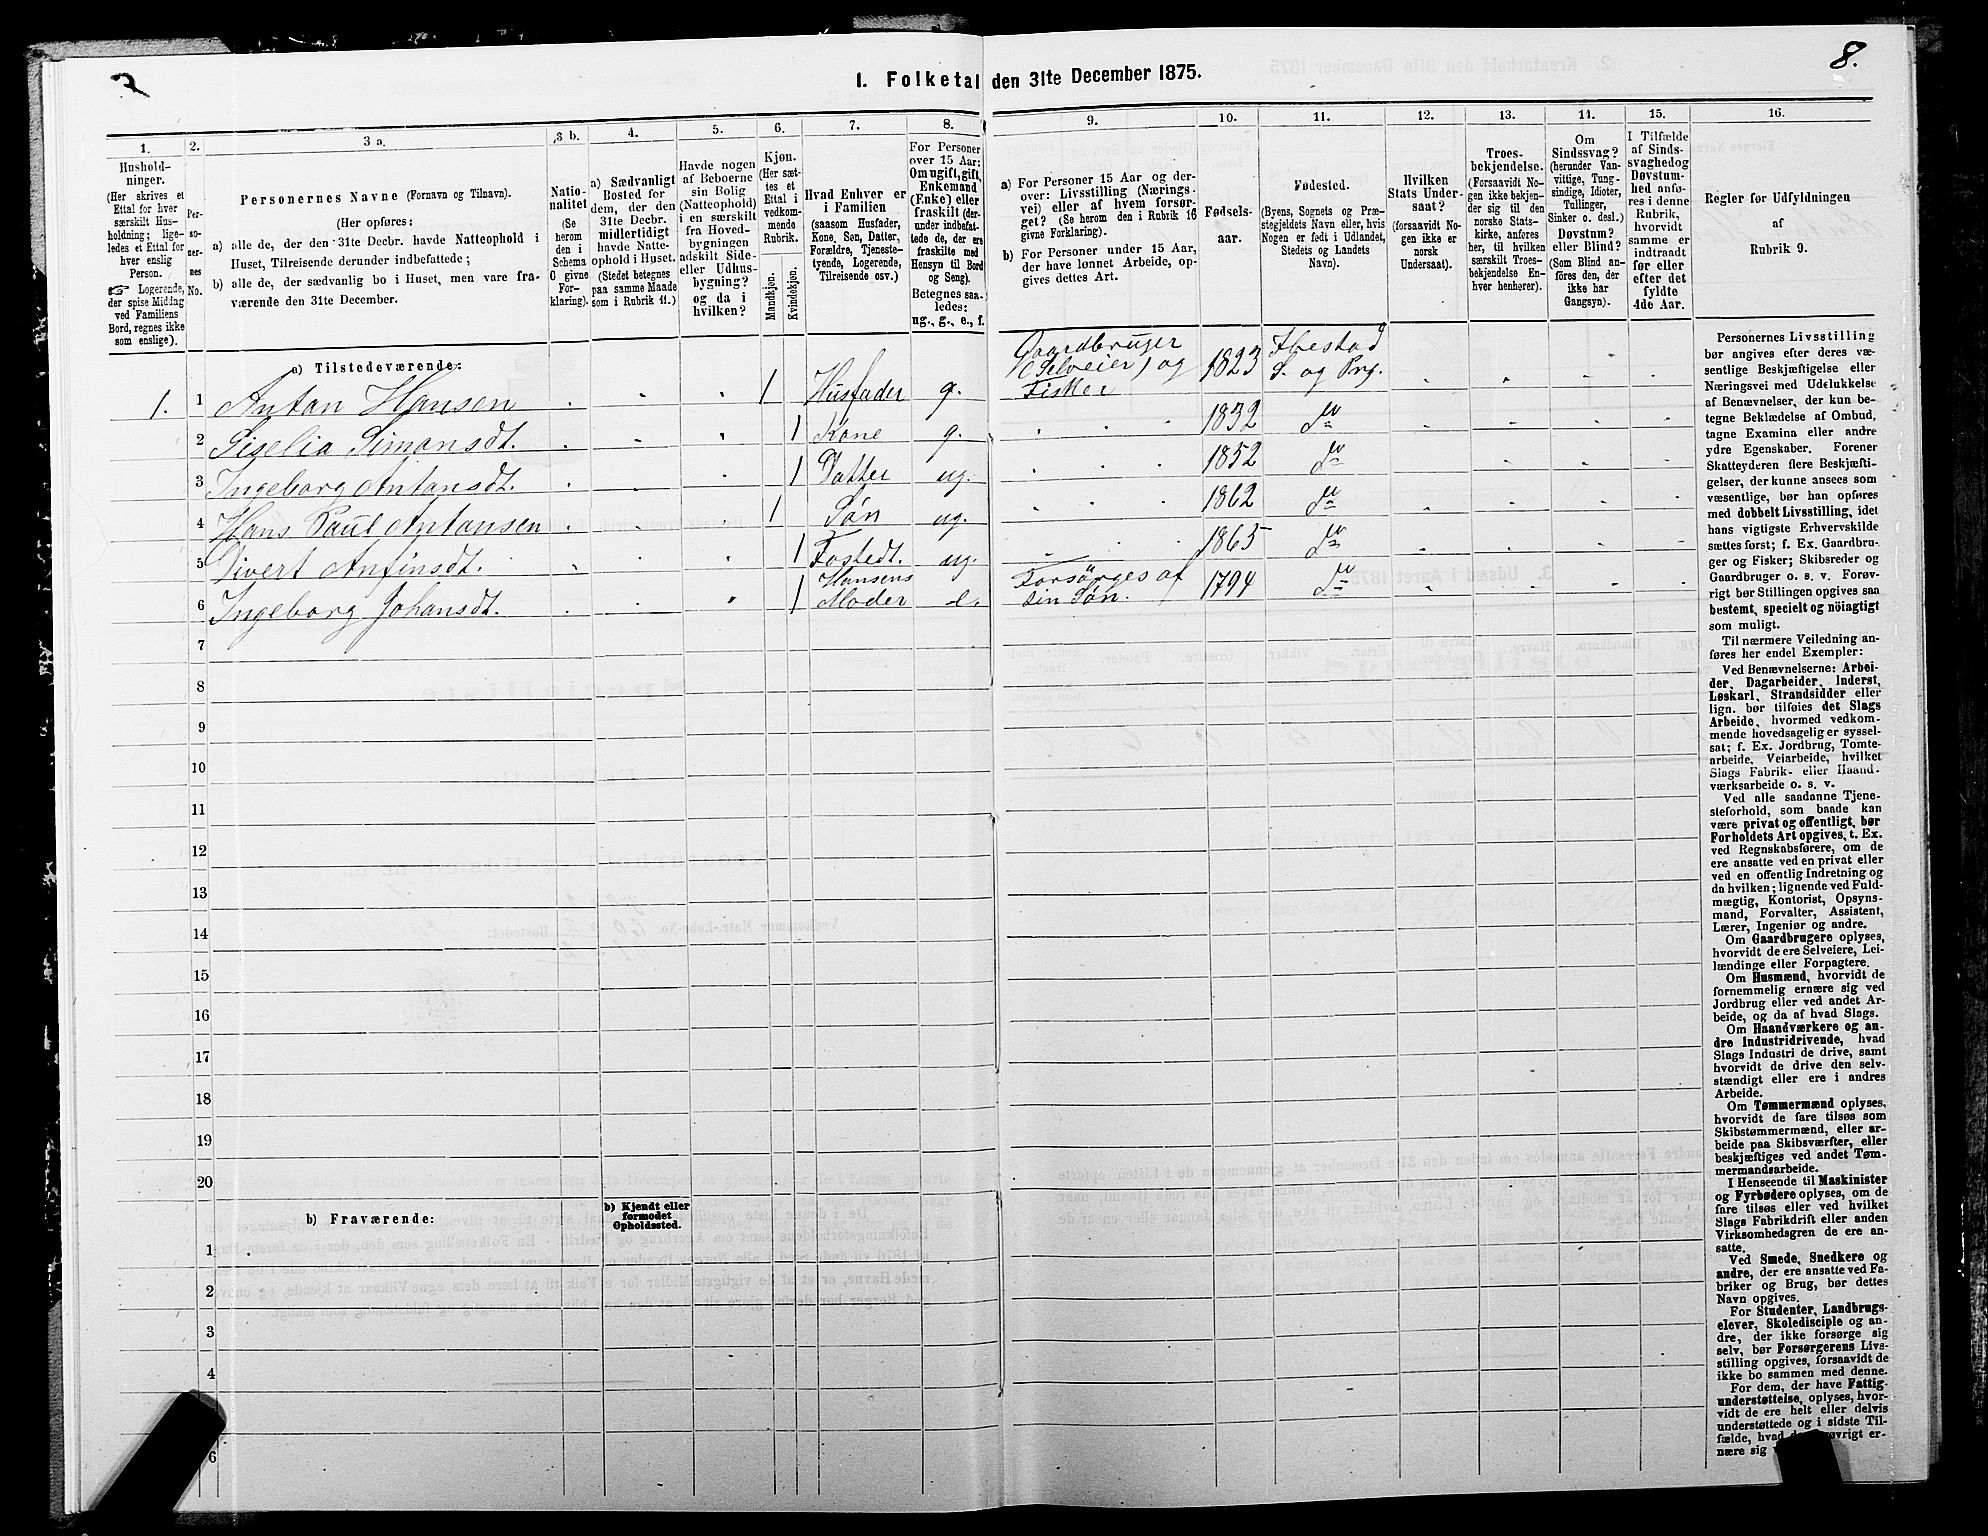 7
8.
I. Folketal den 31te December 1875.
1.
Hushold-
ninger.
(Her skrives et
Ettal for hver
særskilt Hus-
holdning; lige-
ledes et Ettal for
hver enslig
Person.
☞ Logerende,
der spise Middag
ved Familiens
Bord, regnes ikke
som enslige).
2.
Per-
so-
ner-
nes
No.
3 a.
Personernes Navne (Fornavn og Tilnavn).
(Her opføres:
a) alle de, der den 31te Decbr. havde Natteophold i
Huset, Tilreisende derunder indbefattede;
b) alle de, der sædvanlig bo i Huset, men vare fra-
værende den 31te December.
3 b.
Natio-
nalitet
(Se
herom
den i
Schema
C givne
For-
klaring).
4.
a) Sædvanligt
Bosted for
dem, der den
31te Decbr.
midlertidigt
havde Natte-
ophold i Huset.
(Stedet betegnes
paa samme Maade
som i Rubrik 11.)
5.
Havde nogen
af Beboerne
sin Bolig
(Natteophold)
i en særskilt
fra Hoved-
bygningen
adskilt Side-
eller Udhus-
bygning?
og da i
hvilken?
6.
Kjøn.
(Her sæt-
tes et
Ettal i
vedkom-
mende
Rubrik.
Mandkjøn.
Kvindekjøn.
7.
Hvad Enhver er
i Familien
(saasom Husfader,
Kone, Søn, Datter,
Forældre, Tjeneste-
tyende, Logerende,
Tilreisende osv.)
8.
For Personer
over 15 Aar:
Om ugift, gift,
Enkemand
(Enke) eller
fraskilt (der-
under indbefat-
tede de, der ere
fraskilte med
Hensyn til Bord
og Seng).
Betegnes saa-
ledes:
ug., g., e., f.
9.
a) For Personer 15 Aar og der-
over: Livsstilling (Nærings-
vei) eller af hvem forsør-
get? (Se herom den i Rubrik 16
givne Forklaring).
b) For Personer under 15 Aar,
der have lønnet Arbeide, op-
gives dettes Art.
10.
Fødsels-
aar.
11.
Fødested.
(Byens, Sognets og Præ-
stegjeldets Navn eller, hvis
Nogen er født i Udlandet,
Stedets og Landets
Navn).
12.
Hvilken
Stats Under-
saat?
(forsaavidt No-
gen ikke er
norsk
Undersaat).
13.
Troes-
bekjendelse.
(Forsaavidt No-
gen ikke bekjen-
der sig til den
norske Stats-
kirke, anføres
her, til hvilken
særskilt Troes-
bekjendelse En-
hver henhører).
14.
Om
Sindssvag?
(herunder Van-
vittige, Tung-
sindige, Idioter,
Tullinger,
Sinker o. desl.)
Døvstum?
eller Blind?
(Som Blind an-
føres den, der
ikke har
Gangsyn).
15.
I Tilfælde
af Sinds-
svaghedog
Døvstum-
hed anfø-
res i denne
Rubrik,
hvorvidt
samme er
indtraadt
før eller
efter det
fyldte
4de Aar.
16.
Regler for Udfyldningen
af
Rubrik 9.
a) Tilstedeværende:
1. 1 Antan Hansen 1 Husfader g. Gaardbruger (Selveier) og Fisker 1823 Ibestad S. og Prg.
2 Giselia Simonsdt. 1 Kone g. 1832 do
3 Ingeborg Antansdt. 1 Datter ug. 1852 do
4 Hans Paul Antansen 1 Søn ug. 1862 do
5 Sivert Anfinsdt. 1 Fostedt. ug. 1865 do
6 Ingeborg Johansdt. 1 Hansens Moder e. Forsørges af sin Søn. 1794 do
7
8
9
10
11
12
13
14
15
16
17
18
19
20
b) Fraværende:
b) Kjendt eller
formodet
Opholdssted.
1
2
3
4
6
Personernes Livsstilling
bør angives efter deres væ-
sentlige Beskjæftigelse eller
Næringsvei med Udelukkelse
af Benævnelser, der kun be-
tegne Beklædelse af Ombud,
tagne Examina eller andre
ydre Egenskaber. Forener
Skatteyderen flere Beskjæfti-
gelser, der kunne ansees som
væsentlige, bør han opføres
med dobbelt Livsstilling, idet
hans vigtigste Erhvervskilde
sættes først; f. Ex. Gaardbru-
ger og Fisker; Skibsreder og
Gaardbruger o. s. v. Forøv-
rigt bør Stillingen opgives saa
bestemt, specielt og nöiagtigt
som muligt.
Til nærmere Veiledning an-
føres her endel Exempler:
Ved Benævnelserne: Arbei-
der, Dagarbeider, Inderst,
Løskarl, Strandsidder eller
lign. bør tilføies det Slags
Arbeide, hvormed vedkom-
mende hovedsagelig er syssel-
sat; f. Ex. Jordbrug, Tomte-
arbeide, Veiarbeide, hvilket
Slags Fabrik- eller Haand-
værksarbeide o. s. v.
Ved alle saadanne Tjene-
steforhold, som baade kan
være privat og offentligt, bør
Forholdets Art opgives, t. Ex.
ved Regnskabsførere, om de
ere ansatte ved en privat eller
ved en offentlig Indretning og
da hvilken; lignende ved Fuld-
mægtig, Kontorist, Opsyns-
mand, Forvalter, Assistent,
Lærer, Ingeniør og andre.
Om Gaardbrugere oplyses,
hvorvidt de ere Selveiere, Lei-
lændinge eller Forpagtere.
Om Husmænd, hvorvidt de
fornemmelig ernære sig ved
Jordbrug eller ved andet Ar-
beide, og da af hvad Slags.
Om Haandværkere og an-
dre Industridrivende, hvad
Slags Industri de drive, samt
hvorvidt de drive den selv-
stændigt eller ere i andres
Arbeide.
Om Tømmermænd oplyses,
hvorvidt de fare tilsøs som
Skibstømmermænd, eller ar-
beide paa Skibsværfter, eller
beskjæftiges ved andet Tøm-
mermandsarbeide.
I Henseende til Maskinister
og Fyrbødere oplyses, om de
fare tilsøs eller ved hvilket
Slags Fabrikdrift eller anden
Virksomhedsgren de ere an-
satte.
Ved Smede, Snedkere og
andre, der ere ansatte ved Fa-
briker og Brug, bør dettes
Navn opgives.
For Studenter, Landbrugs-
elever, Skoledisciple og an-
dre, der ikke forsørge sig
selv, bør Forsørgerens Livs-
stilling opgives, forsaavidt de
ikke bo sammen med denne.
For dem, der have Fattig-
understøttelse, oplyses, hvor-
vidt de ere helt eller delvis
understøttede og i sidste Til-
fælde, hvad de forøvrigt er-
nære sig